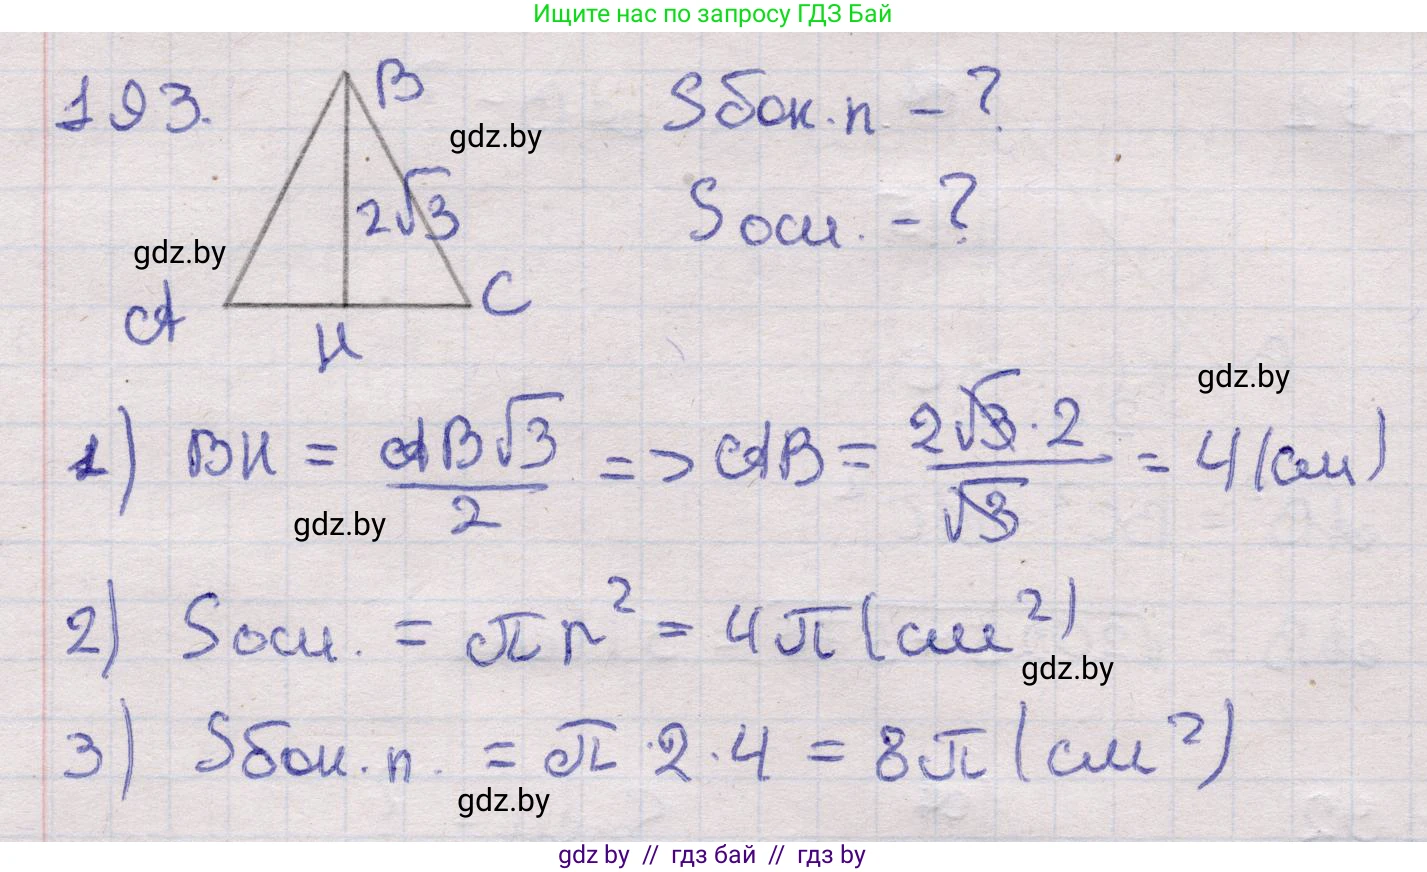 Ищите нас по запросу ГДЗ Бай
193.
B
Sбок.п. - ?
gdz.by
2√3
Sосн. - ?
gdz.by
A
C
H
gdz.by
1) BH = AB√3/2 => AB = 2√3·2/√3 = 4 (см)
gdz.by
2) Sосн. = πr² = 4π (см²)
gdz.by
3) Sбок.п. = π·2·4 = 8π (см²)
gdz.by
gdz by // гдз бай // гдз by